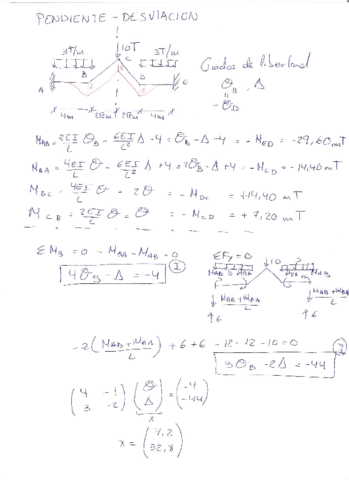 PENDIENTE - DESVIACION
3T/m 10T 3T/m
A B C D E
4m 2√2m 2√2m 4m
Grados de libertad
θB , Δ
-θD
MAB = 2EI/L θB - 6EI/L² Δ - 4 = θB - Δ - 4 = -MED = -29,60 mT
MBA = 4EI/L θ - 6EI/L² Δ + 4 = 2θB - Δ + 4 = -MCD = -14,40 mT
MBC = 4EI/L θ = 2θ = -MDC = 14,40 mT
MCB = 2EI/L θ = θ = -MCD = +7,20 mT
ΣMB = 0 → MBA - MAB = 0
4θB - Δ = -4 ①
ΣFy = 0
10
MAB MBA MAB
MAB+MBA/L MAB+MBA/L
↑6 ↑6
-2(MAB+MBA/L) + 6 + 6 - 12 - 12 - 10 = 0
3θB - 2Δ = -44 ②
(4 -1 3 -2) (θ Δ) = (-4 -44)
x
x = (7,2 32,8)